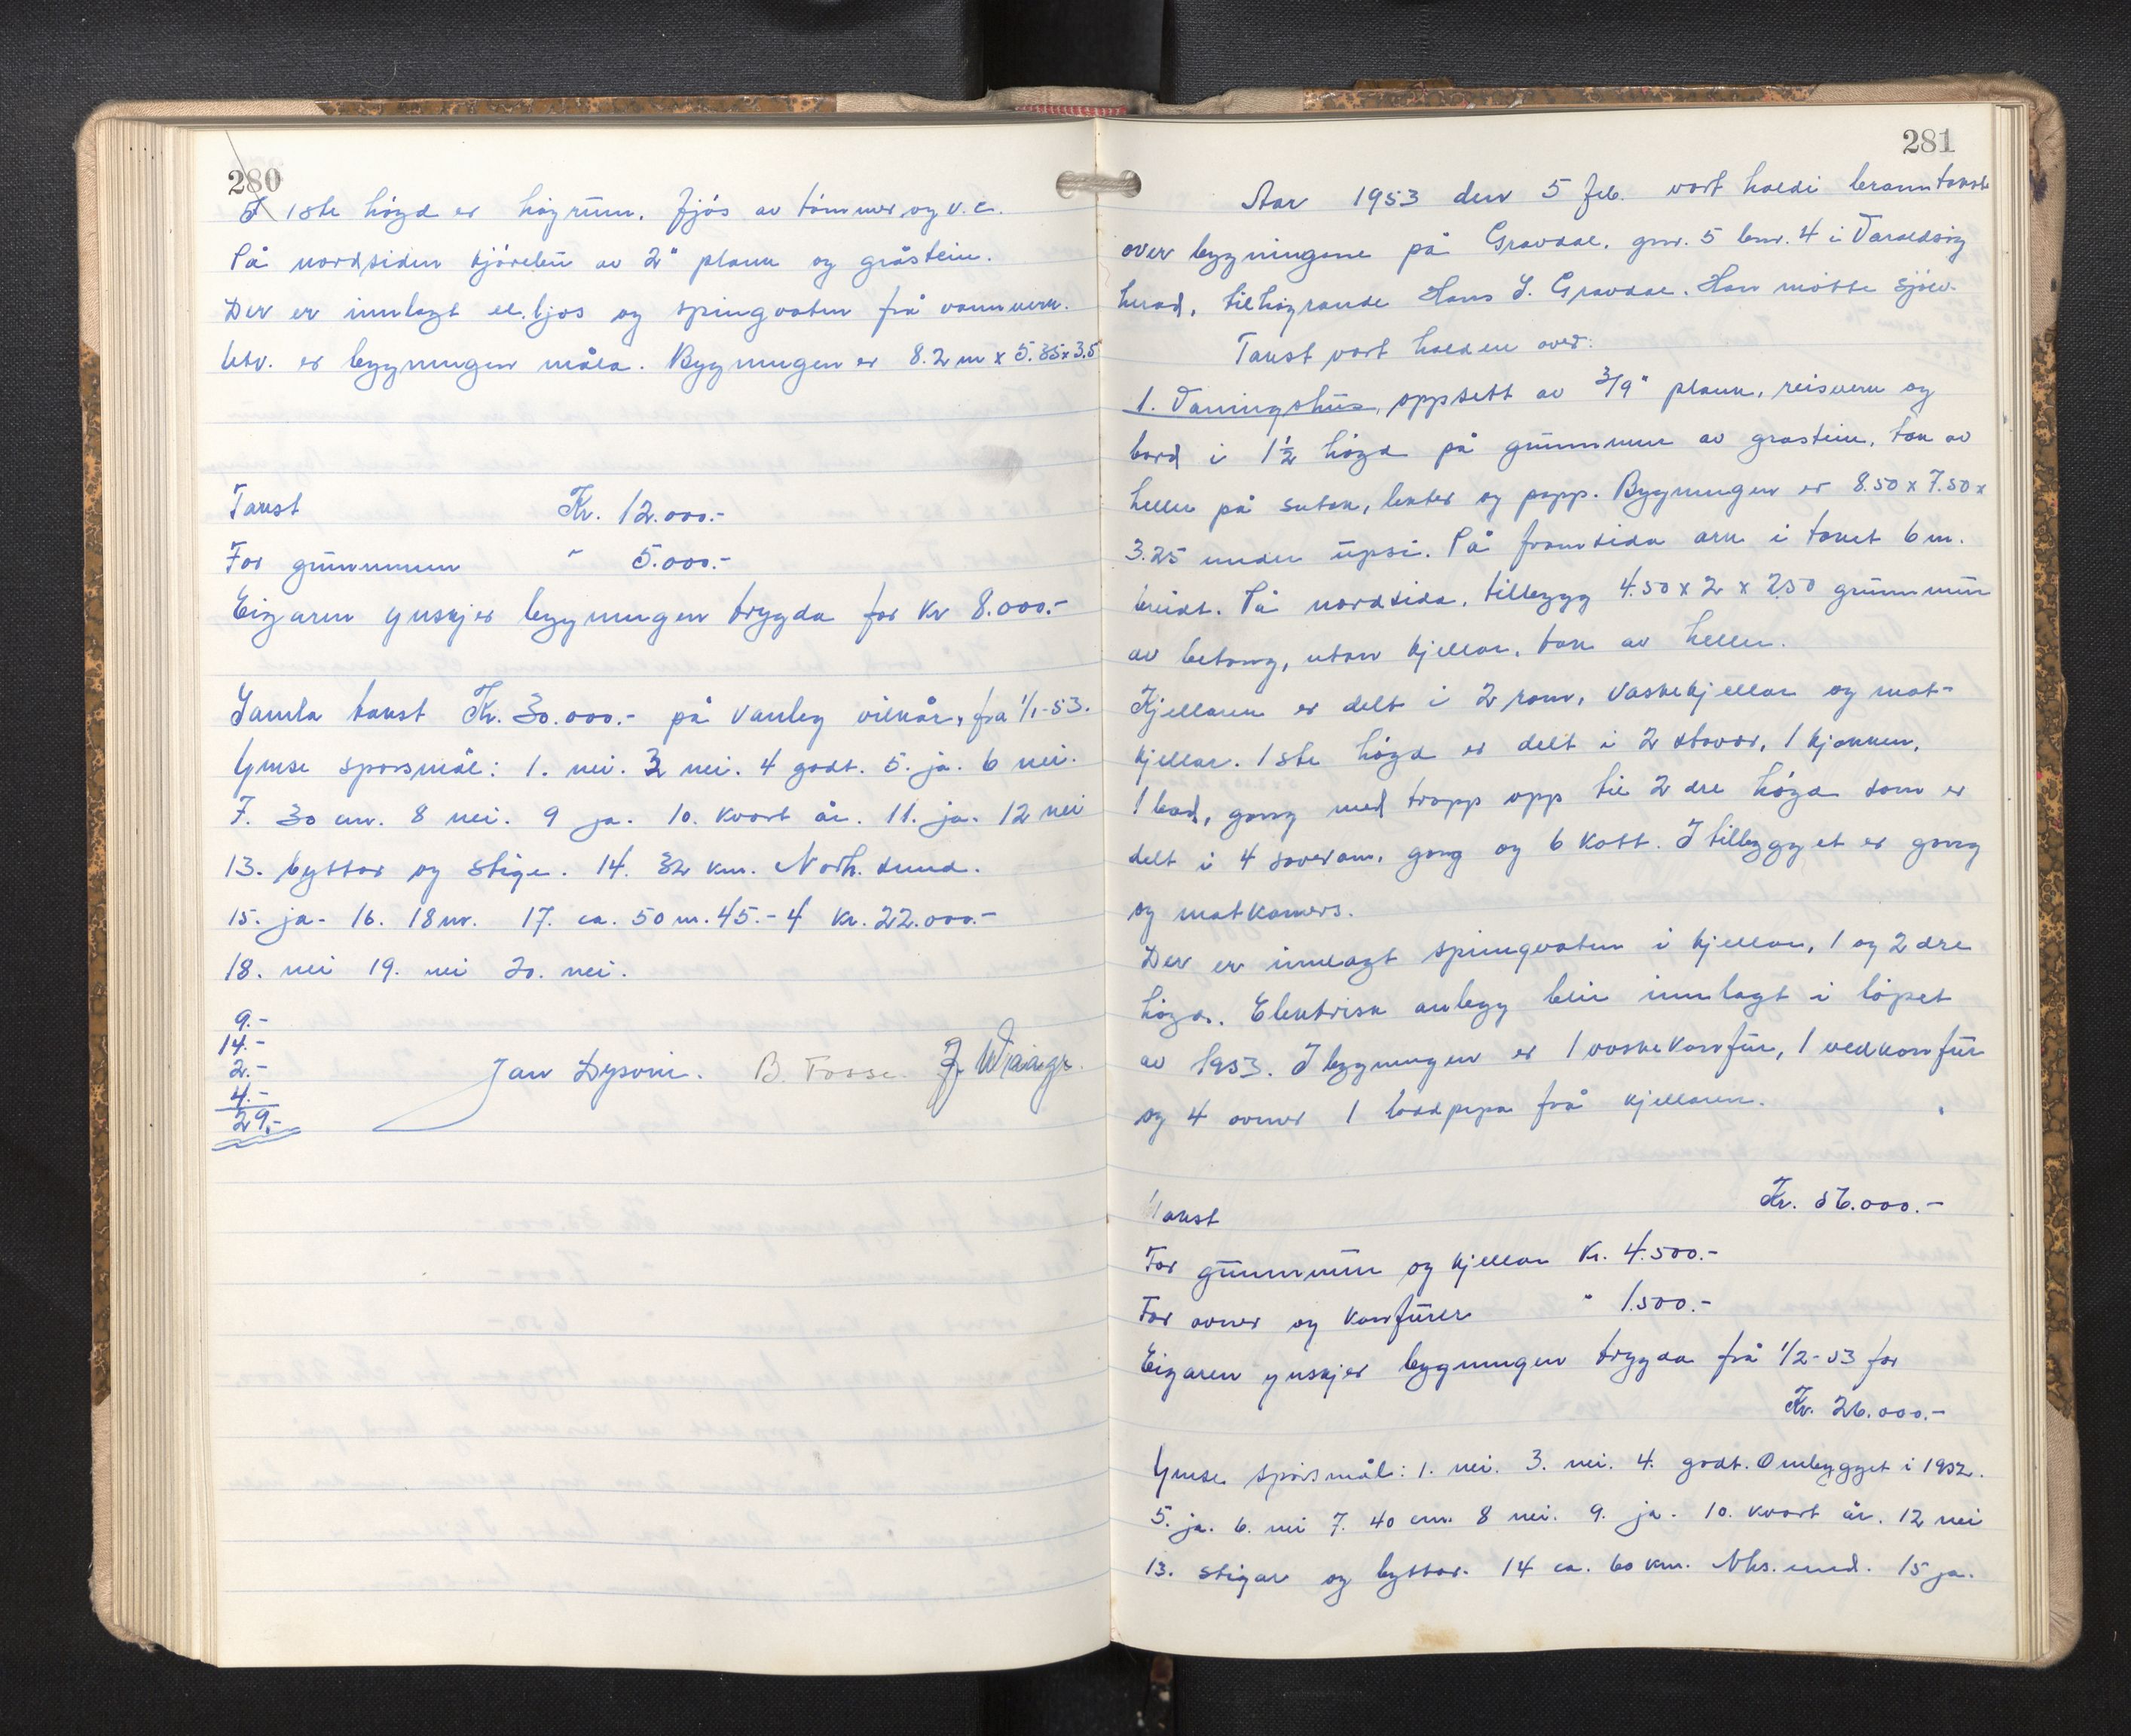 280
I 1ste högd er höyrüm. fjös av tömmer og v.c.
På nordsiden kjörebru av 2" plank og gråstein.
Der er innlagt el.ljos og springvatn frå vannverk.
Utv. er bygningen måla. Bygningen er 8.2 m x 5.35 x 3.5
Takst Kr. 12.000.-
For grünnmuren " 5.000.-
Eigaren ynskjer bygningen trygda for Kr 8.000.-
Samla takst Kr. 30.000.- på vanleg vilkår, fra 1/1-53.
Ymse sporsmål: 1. nei. 3 nei. 4 godt. 5. ja. 6 nei.
7. 30 cm. 8 nei. 9 ja. 10. kvart år. 11. ja. 12 nei
13. byttor og stige. 14. 32 km. Norh. sund.
15. ja. 16. 18 m. 17. ca. 50 m. 45.-4 Kr. 22.000.-
18. nei 19. nei 20. nei.
9.-
14.-
2.-
4.-
29.-
Jan Dysvik. B. Fosse.
281
Aar 1953 den 5 feb. vart haldi branntakst
over bygningane på Gravdal, gnr. 5 bnr. 4 i Varaldsöy
herad, tilhöyrande Hans J. Gravdal. Han mötte sjölv.
Takst vart halden over:
1. Vaningshüs, oppsett av 3/9" plank, reisverk og
bord i 1½ högd på grünnmur av grastein, tak av
heller på sutak, lekter og papp. Bygningen er 8.50 x 7.50 x
3.25 under üpsi. På framsida ark i taket 6 m.
breidt. På nordsida, tillbygg 4.50 x 2 x 2.50 grünnmür
av betong, utan kjellar, tak av heller.
Kjellaren er delt i 2 rom, vaskekjellar og mat-
kjellar. 1ste högd er delt i 2 stovor, 1 kjökken,
1 bad, gang med trapp opp til 2dre högd som er
delt i 4 soverom, gang og 6 kott. I tillbygget er gang
og matkamers.
Der er innlagt springvatn i kjellar, 1 og 2dre
högd. Elektrisk anlegg blir innlagt i löpet
av 1953. I bygningen er 1 vaskekomfür, 1 vedkomfür
og 4 ovner 1 loddpipa frå kjellaren.
Takst Kr. 56.000.-
For grünnmür og kjellar Kr. 4.500.-
For ovner og komfürer " 1.500.-
Eigaren ynskjer bygningen trygda frå 1/2-53 for
Kr. 26.000.-
Ymse spörsmål: 1. nei. 3. nei. 4. godt. Ombygget i 1952.
5. ja. 6. nei 7. 40 cm. 8 nei. 9. ja. 10. kvart år. 12 nei
13. stigar og byttor. 14 ca. 60 km. Nhs.und. 15 ja.